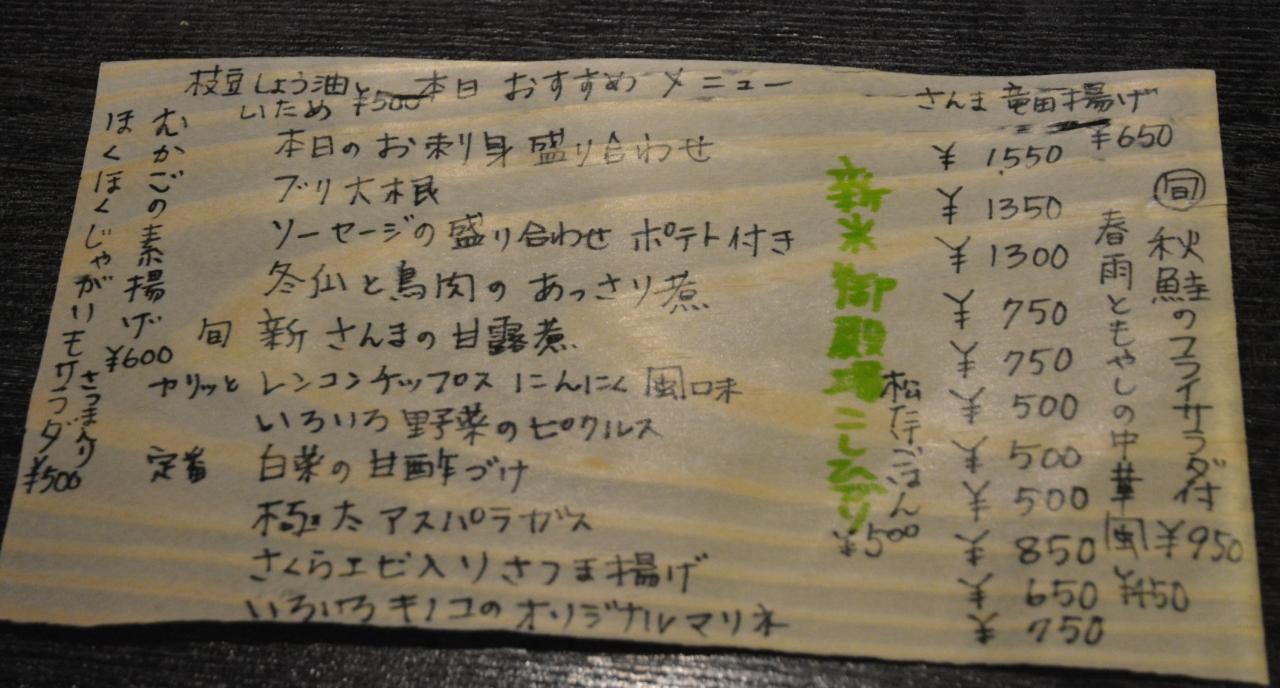 本日おすすめメニュー
枝豆しょう油と
いため ¥500
さんま竜田揚げ
¥650
本日のお刺身盛り合わせ ¥1550
ブリ大根 ¥1350
ソーセージの盛り合わせ ポテト付き ¥1300
冬仙と鳥肉のあっさり煮 ¥750
旬 新さんまの甘露煮 ¥750
カリッと レンコンチップス にんにく風味 ¥500
いろいろ野菜のピクルス ¥500
定番 白菜の甘酢づけ ¥500
極太アスパラガス ¥850
さくらエビ入りさつま揚げ ¥650
いろいろキノコのオリジナルマリネ ¥750
旬 秋鮭のフライサラダ付 ¥950
春雨ともやしの中華風 ¥450
新米御殿場こしひかり
松茸ごはん
¥500
むかごの素揚げ
¥600
ほくほくじゃがいもサラダ
さつま入り
¥500